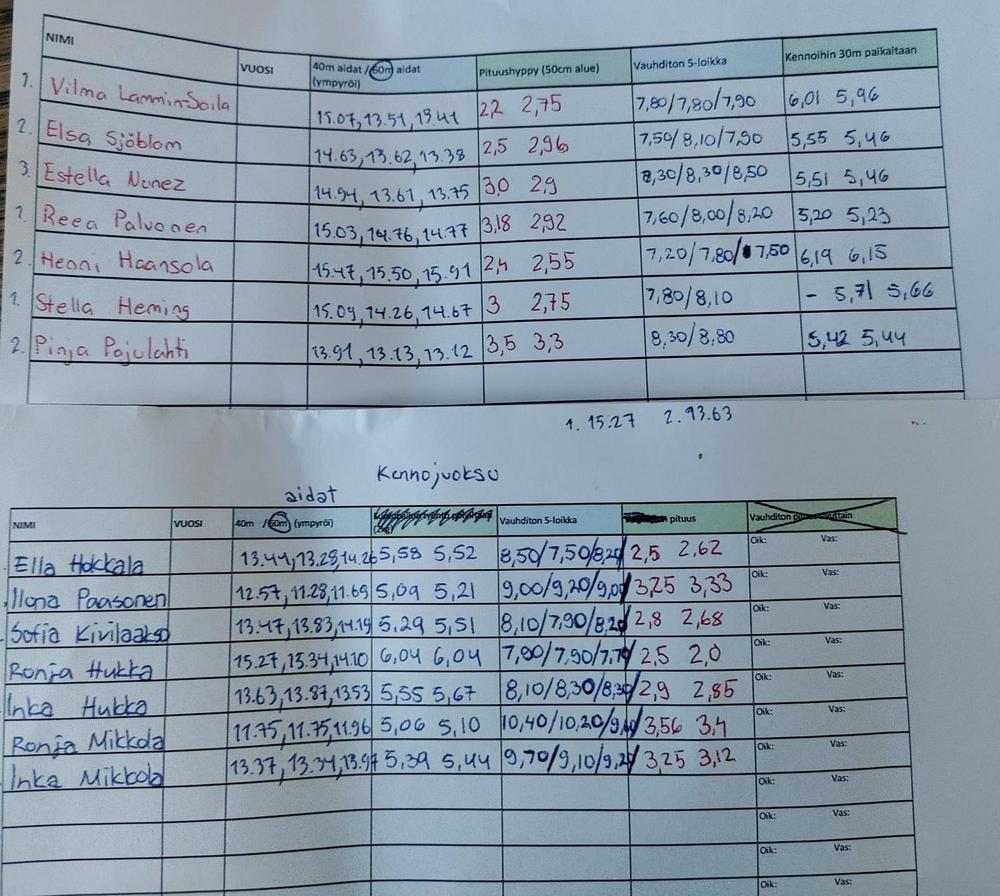 NIMI VUOSI 40m aidat / 60m aidat (ympyröi) Pituushyppy (50cm alue) Vauhditon 5-loikka Kennoihin 30m paikaltaan
1. Vilma Lammin-Soila 15.07, 13.51, 13.41 2,2 2,75 7,80/7,80/7,90 6,01 5,96
2. Elsa Sjöblom 14.63, 13.62, 13.38 2,5 2,96 7,50/8,10/7,90 5,55 5,46
3. Estella Nunez 14.94, 13.61, 13.75 3,0 2,9 8,30/8,30/8,50 5,51 5,46
1. Reea Palvonen 15.03, 14.76, 14.77 3,18 2,92 7,60/8,00/8,20 5,20 5,23
2. Henni Haansola 15.47, 15.50, 15.91 2,4 2,55 7,20/7,80/7,50 6,19 6,15
1. Stella Heming 15.09, 14.26, 14.67 3 2,75 7,80/8,10 - 5,71 5,66
2. Pinja Pajulahti 13.91, 13.13, 13.12 3,5 3,3 8,30/8,80 5,42 5,44
1. 15.27 2. 13.63
Kennojuoksu
aidat
NIMI VUOSI 40m /60m (ympyröi) Vauhditon 5-loikka pituus Vauhditon
Ella Hokkala 13.44, 13.28, 14.26 5,58 5,52 8,50/7,50/8,20 2,5 2,62 Oik: Vas:
Ilona Paasonen 12.57, 11.28, 11.69 5,09 5,21 9,00/9,20/9,00 3,25 3,33 Oik: Vas:
Sofia Kivilaakso 13.47, 13.83, 14.19 5,29 5,51 8,10/7,90/8,20 2,8 2,68 Oik: Vas:
Ronja Hukka 15.27, 13.34, 14.10 6,04 6,04 7,90/7,50/7,70 2,5 2,0 Oik: Vas:
Inka Hukka 13.63, 13.87, 13.53 5,55 5,67 8,10/8,30/8,30 2,9 2,85 Oik: Vas:
Ronja Mikkola 11.75, 11.75, 11.96 5,06 5,10 10,40/10,20/9,60 3,56 3,4 Oik: Vas:
Inka Mikkola 13.37, 13.34, 13.97 5,39 5,44 9,70/9,10/9,20 3,25 3,12 Oik: Vas:
Oik: Vas:
Oik: Vas:
Oik: Vas:
Oik: Vas: